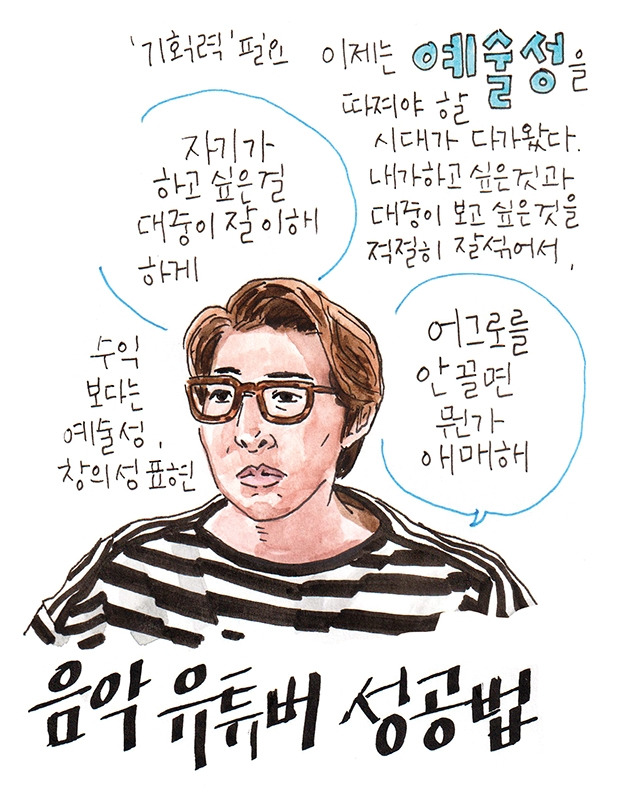 '기획력' 필요
이제는 예술성을
따져야 할
시대가 다가왔다.
내가하고 싶은것과
대중이 보고 싶은것을
적절히 잘섞어서,
자기가
하고 싶은걸
대중이 잘 이해
하게
어그로를
안 끌면
뭔가
애매해
수익
보다는
예술성,
창의성 표현
음악 유튜버 성공법